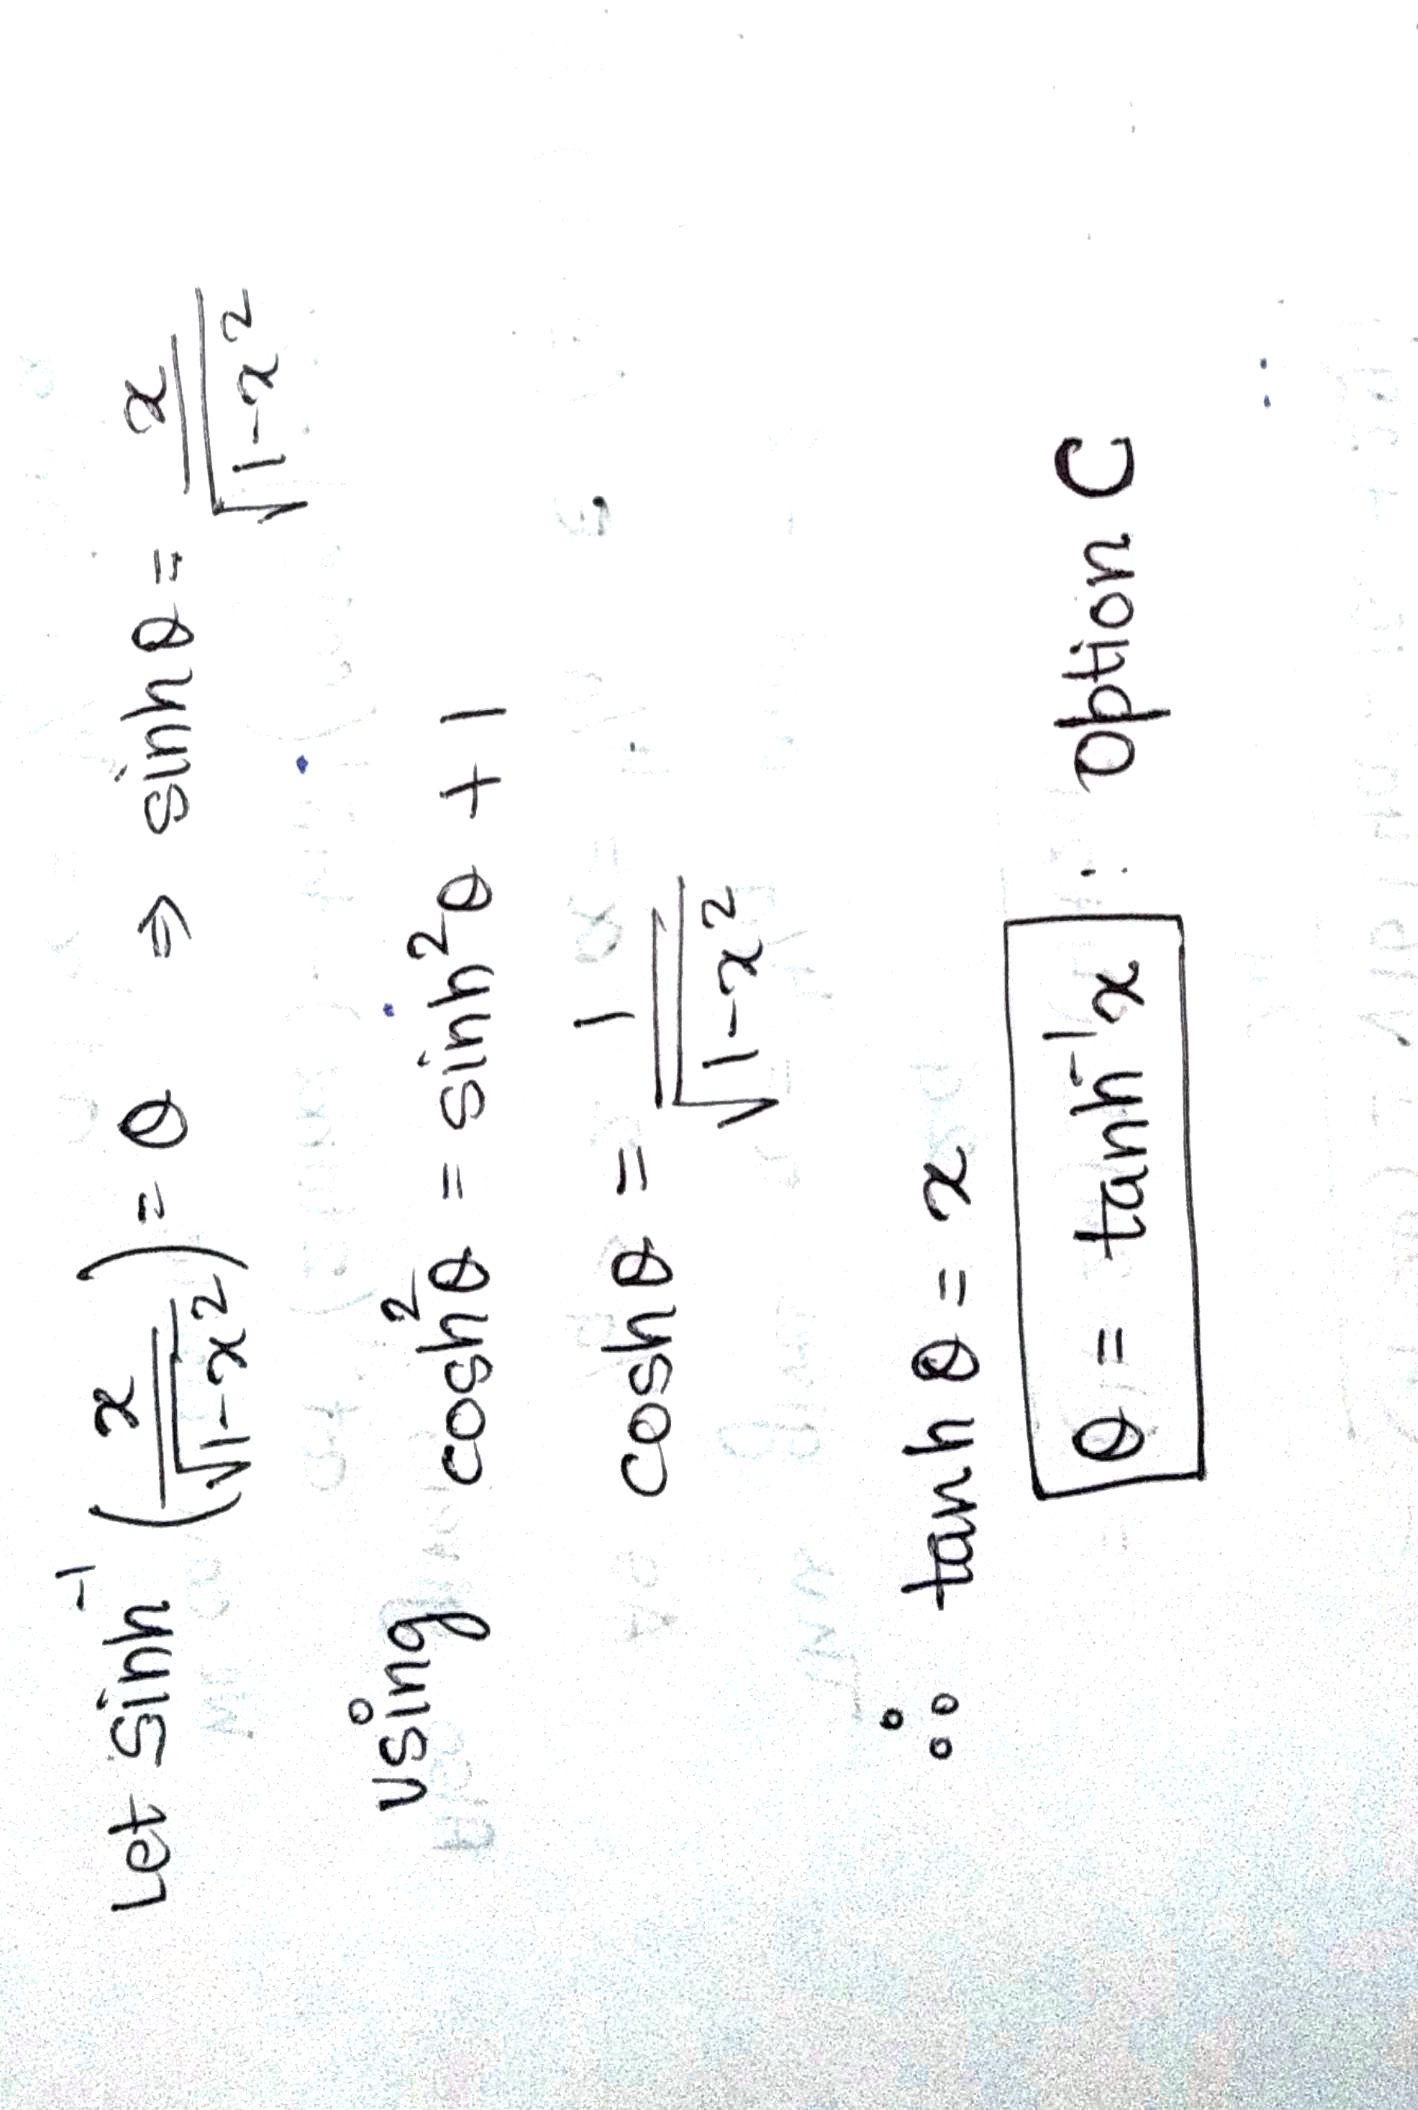 Let Sinh⁻¹ (x/√(1-x²)) = θ ⇒ sinh θ = x/√(1-x²)
Using cosh²θ = sinh²θ + 1
cosh θ = 1/√(1-x²)
∴ tanh θ = x
θ = tanh⁻¹x : option C